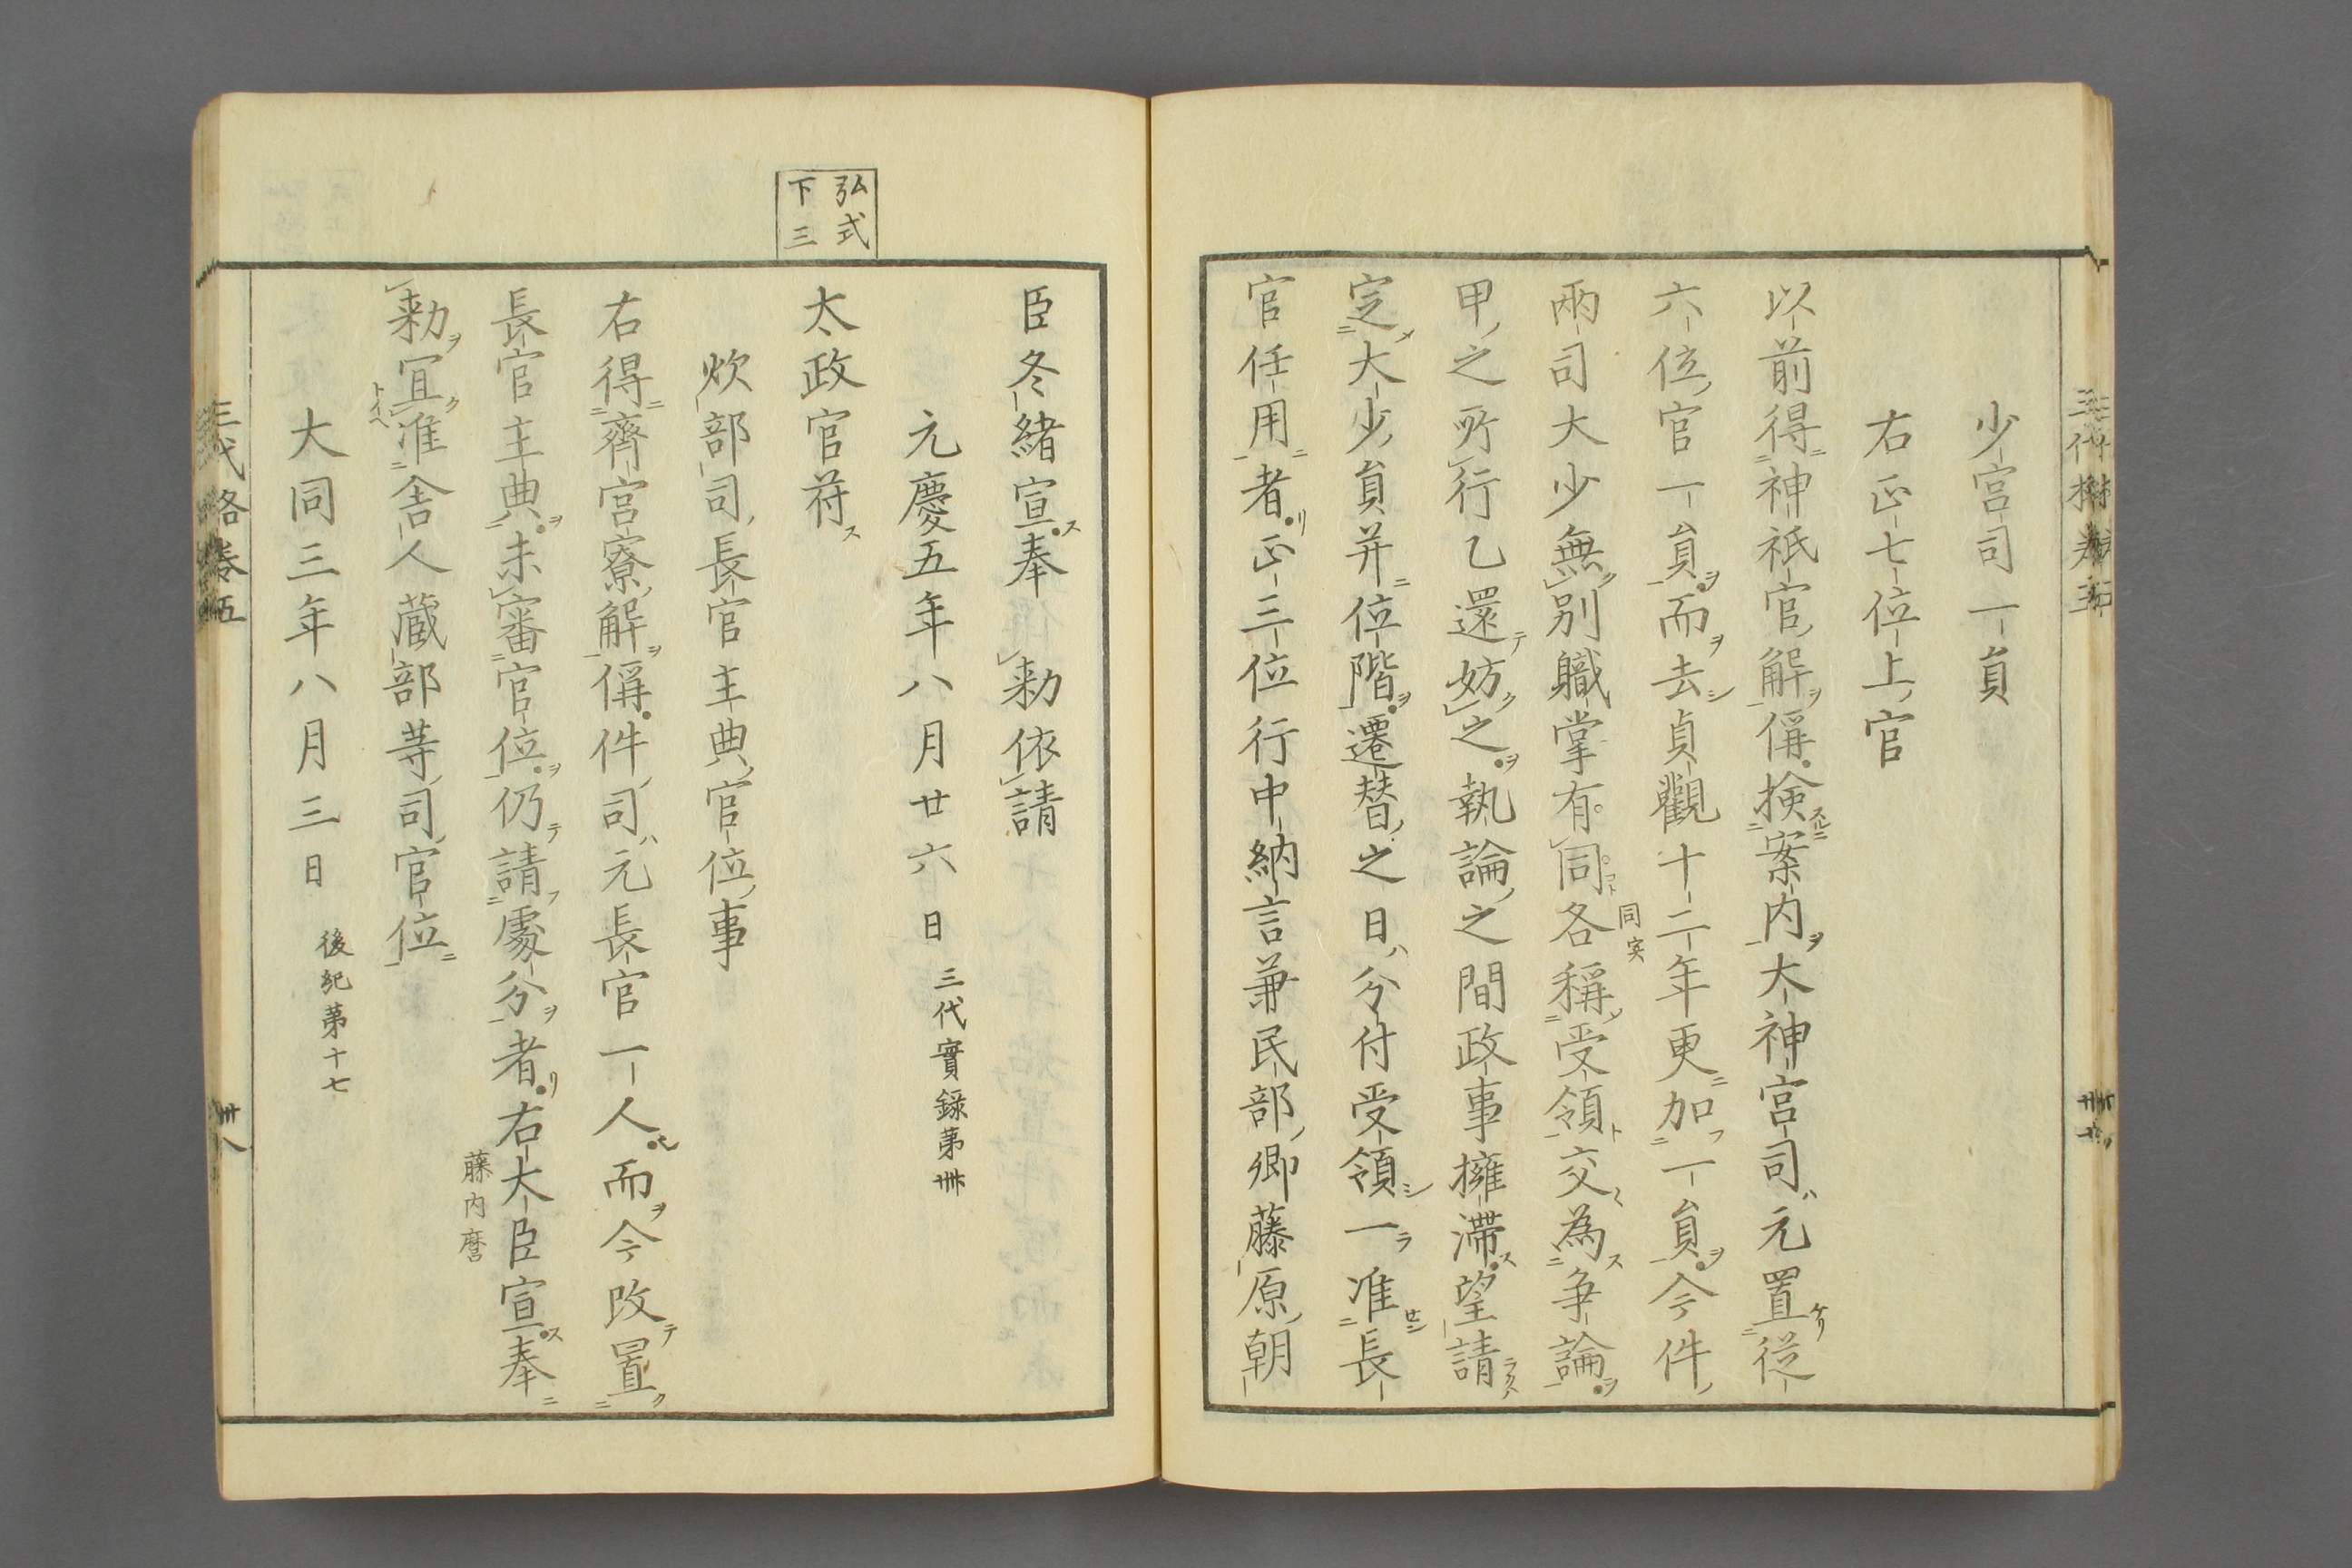 少宮司一員
右正七位上官
以前得神祇官解偁検案内大神宮司元置従
六位官一員而去貞觀十二年更加一員今件
兩司大少無別職掌有同各稱受領交為争論
同実
甲之所行乙還妨之執論之間政事擁滞望請
定大少員并位階遷替之日令付受領一准長
官任用者正三位行中納言兼民部卿藤原朝
弘式
下三
臣冬緒宣奉勅依請
元慶五年八月廿六日 三代實録第卌
太政官符
炊部司長官主典官位事
右得齊宮寮解偁件司元長官一人而今改置
長官主典未審官位仍請處分者右大臣宣奉
藤内麿
勅冝准舎人蔵部等司官位
大同三年八月三日 後紀第十七
三代格巻五
卅八